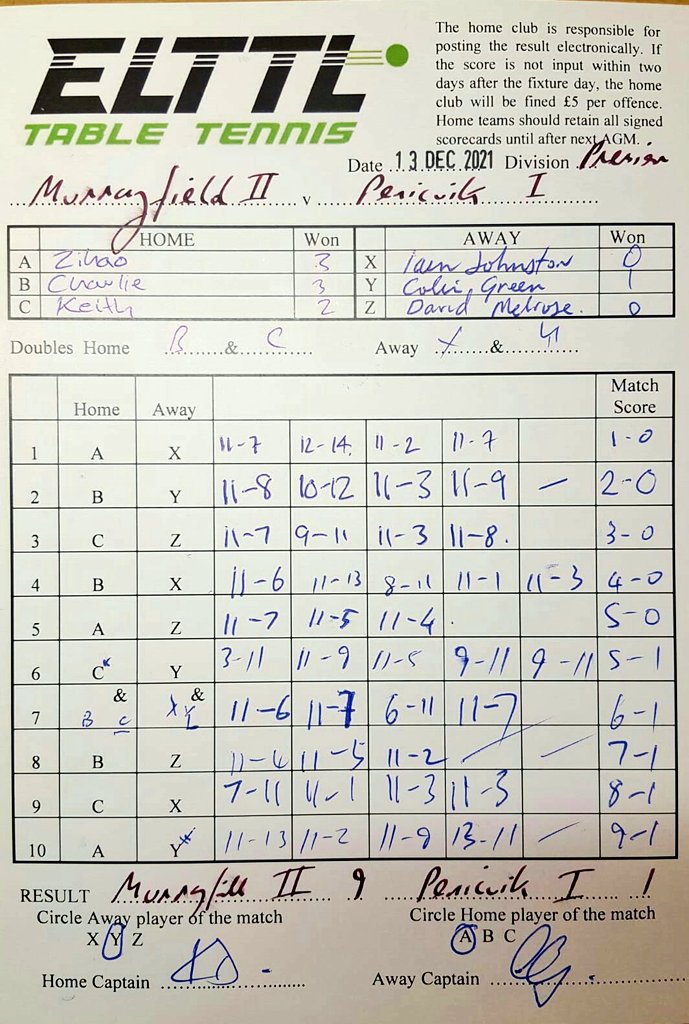 ELTTL
TABLE TENNIS
The home club is responsible for
posting the result electronically. If
the score is not input within two
days after the fixture day, the home
club will be fined £5 per offence.
Home teams should retain all signed
scorecards until after next AGM.
Date 13 DEC 2021 Division
Murrayfield II v Penicuik I
HOME Won AWAY Won
A Zihao 3 X Iain Johnston 0
B Charlie 3 Y Colin Green 1
C Keith 2 Z David Melrose. 0
Doubles Home B & C Away X & Y
Home Away Match Score
1 A X 11-7 12-14 11-2 11-7 1-0
2 B Y 11-8 10-12 11-3 11-9 – 2-0
3 C Z 11-7 9-11 11-3 11-8. 3-0
4 B X 11-6 11-13 8-11 11-1 11-3 4-0
5 A Z 11-7 11-5 11-4 5-0
6 C Y 3-11 11-9 11-5 9-11 9-11 5-1
7 B & C X & Y 11-6 11-7 6-11 11-7 6-1
8 B Z 11-4 11-5 11-2 7-1
9 C X 7-11 11-1 11-3 11-3 8-1
10 A Y 11-13 11-2 11-9 13-11 – 9-1
RESULT Murrayfield II 9 Penicuik I 1
Circle Away player of the match Circle Home player of the match
X Y Z A B C
Home Captain Away Captain